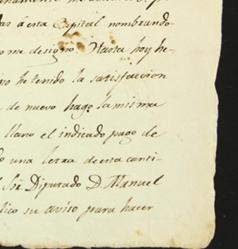 das á esta Capital nombrando
me designo Hasta hoy he
no he tenido la satisfaccion
de nuevo hago la misma
llano el indicado pago de
o una letra de esta canti-
l Sõr Diputado D. Manuel
lico su aviso para hacer